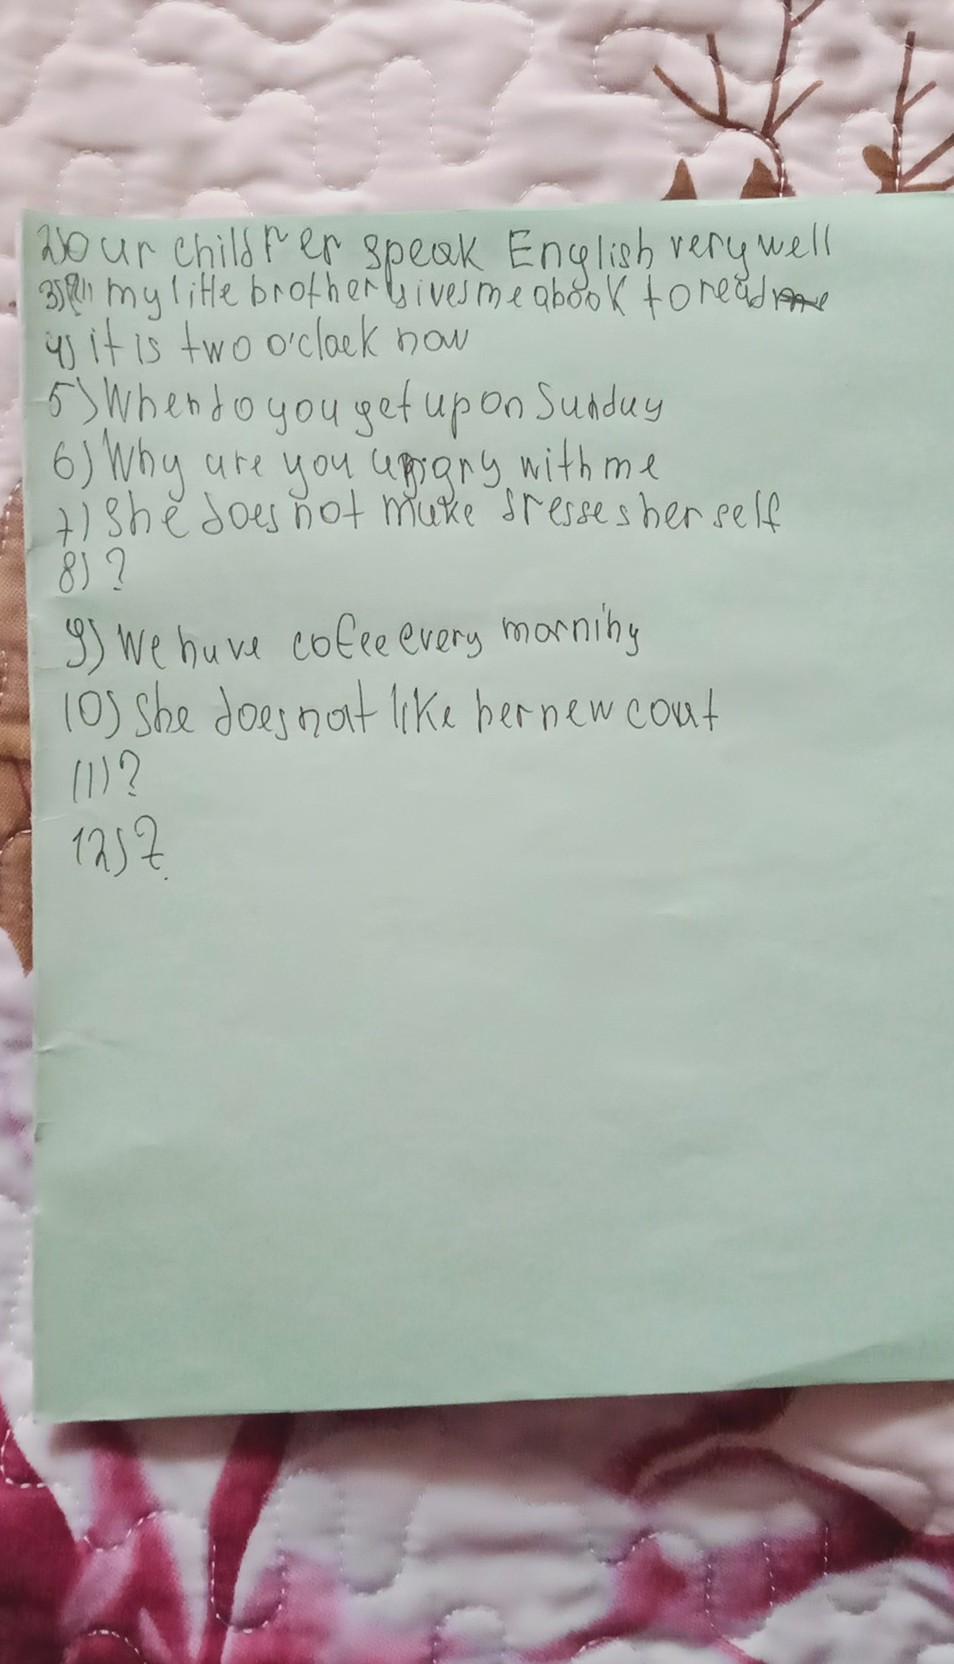 2) Our children speak English very well
3) my little brother gives me a book to read
4) it is two o'clock now
5) When do you get up on Sunday
6) Why are you angry with me
7) She does not make dresses her self
8) ?
9) We have cofee every morning
10) She does not like her new coat
11) ?
12) ?